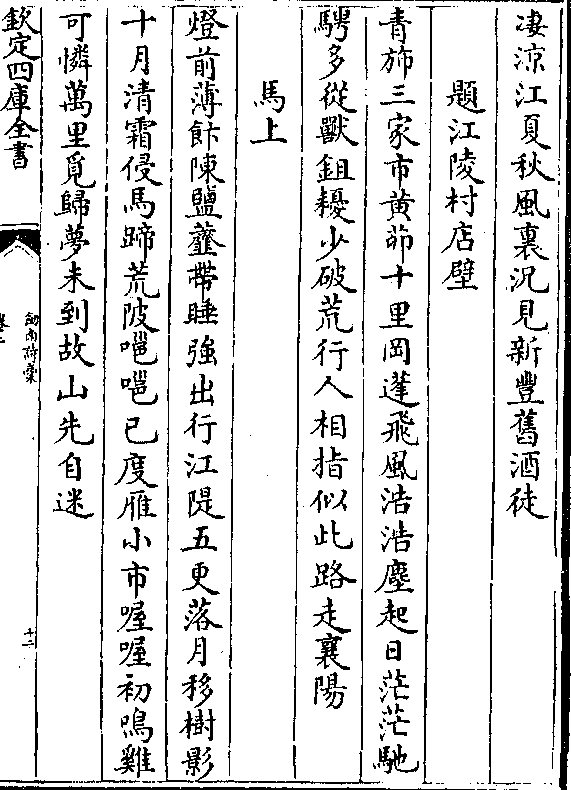 凄涼江夏秋風裏況見新豐舊酒徒
題江陵村店壁
青斾三家市黄茆十里岡蓬飛風浩浩塵起日茫茫馳
騁多從獸鉏耰少破荒行人相指似此路走襄陽
馬上
燈前薄飰陳鹽虀帶睡強出行江隄五更落月移樹影
十月清霜侵馬蹄荒陂嗈嗈已度雁小市喔喔初鳴雞
可憐萬里覓歸夢未到故山先自迷
欽定四庫全書
劒南詩稾
卷二
十二